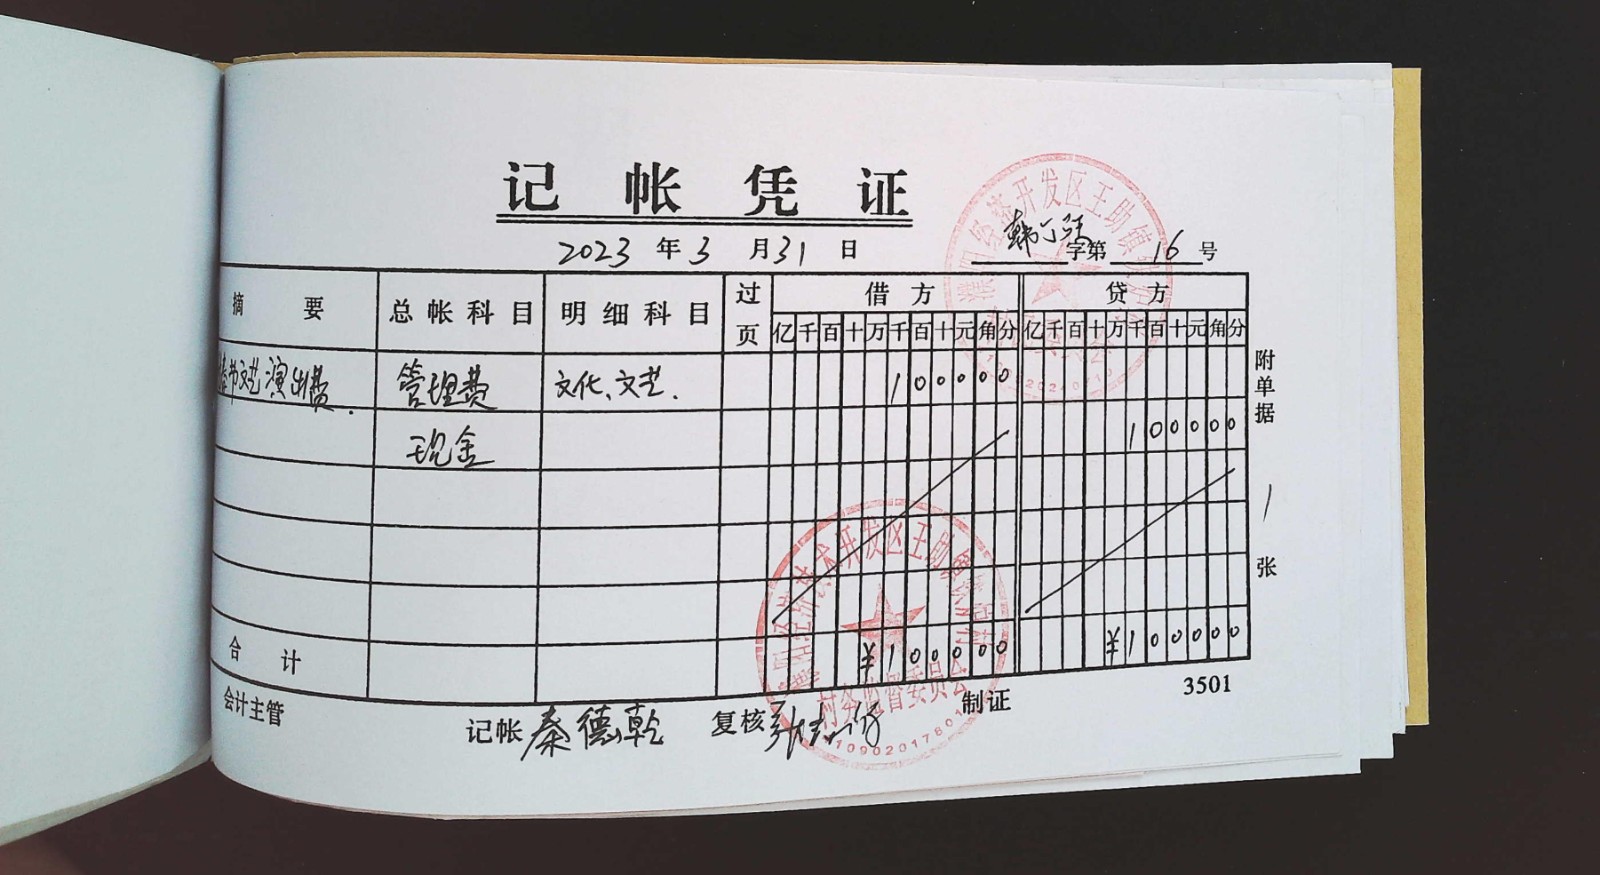 记帐凭证
2023年3月31日
字第16号
摘要 总帐科目 明细科目 过页 借方 贷方
亿千百十万千百十元角分 亿千百十万千百十元角分
春节文艺演出费. 管理费 文化、文艺. 100000
现金 100000
合计 ¥100000 ¥100000
附单据1张
会计主管 记帐秦德乾 复核 制证
3501
开发区王助镇
术开发区王助镇
村务监督委员会